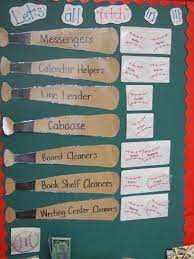 Let's all "pitch" in!!
Messengers
Calendar Helpers
Line Leader
Caboose
Board Cleaners
Book Shelf Cleaners
Writing Center Cleaners